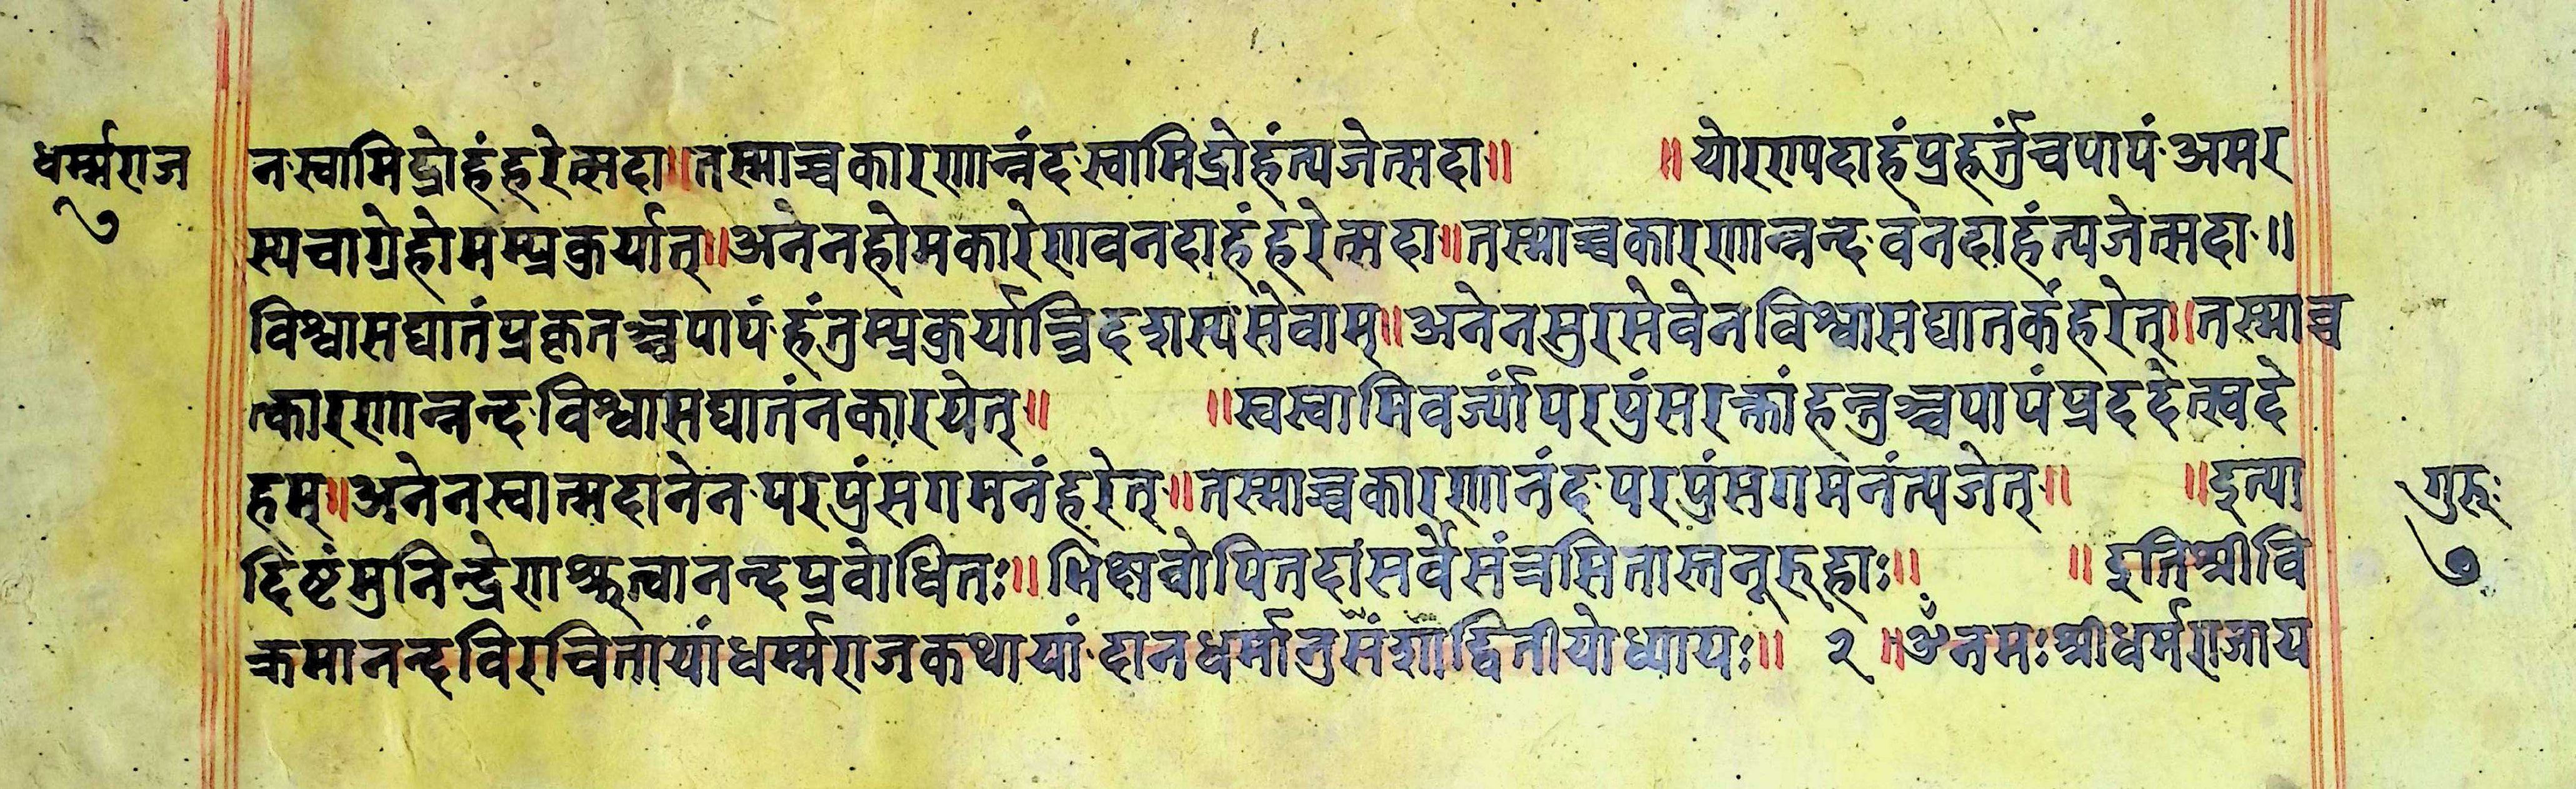 धर्म्मराज
७
न॰स्वामिद्रोहंहरेत्सदा॥तस्माच्चकारणान्नंद॰स्वामिद्रोहंत्यजेत्सदा॥ ॥योररापदाहंप्रहर्तुंचपापं॰अमर
स्यचाग्रेहोमम्प्रकुर्यात्॥अनेनहोमकारेणवनदाहंहरेत्सदा॥तस्माच्चकारणान्नन्द॰वनदाहंत्यजेत्सदा॰॥
विश्वासघातंप्रकृतञ्चपापं॰हंतुम्प्रकुर्यात्त्रिदशस्यसेवाम्॥अनेनसुरसेवेनविश्वासघातकंहरेत्॥तस्माच्च
त्कारणान्नन्द॰विश्वासघातंनकारयेत्॥ ॥स्वस्वामिवर्ज्यांपरपुंसरक्तांहन्तुञ्चपापंप्रददेत्स्वदे
हम्॥अनेनस्वात्मदानेन॰परपुंसगमनंहरेत्॥तस्माच्चकारणानंद॰परपुंसगमनंत्यजेत्॥ ॥इत्या
दिष्टंमुनिन्द्रेणश्रुत्वानन्दप्रवोधितः॥भिक्षवोपितदांसर्वेसंत्रसितास्तनूरुहाः॥ ॥इतिश्रीवि
क्रमानन्दविरचितायांधर्म्मराजकथायां॰दानधर्मानुसंशाद्वितीयोध्यायः॥ २ ॥ॐनमःश्रीधर्मराजाय
गुरुः
७